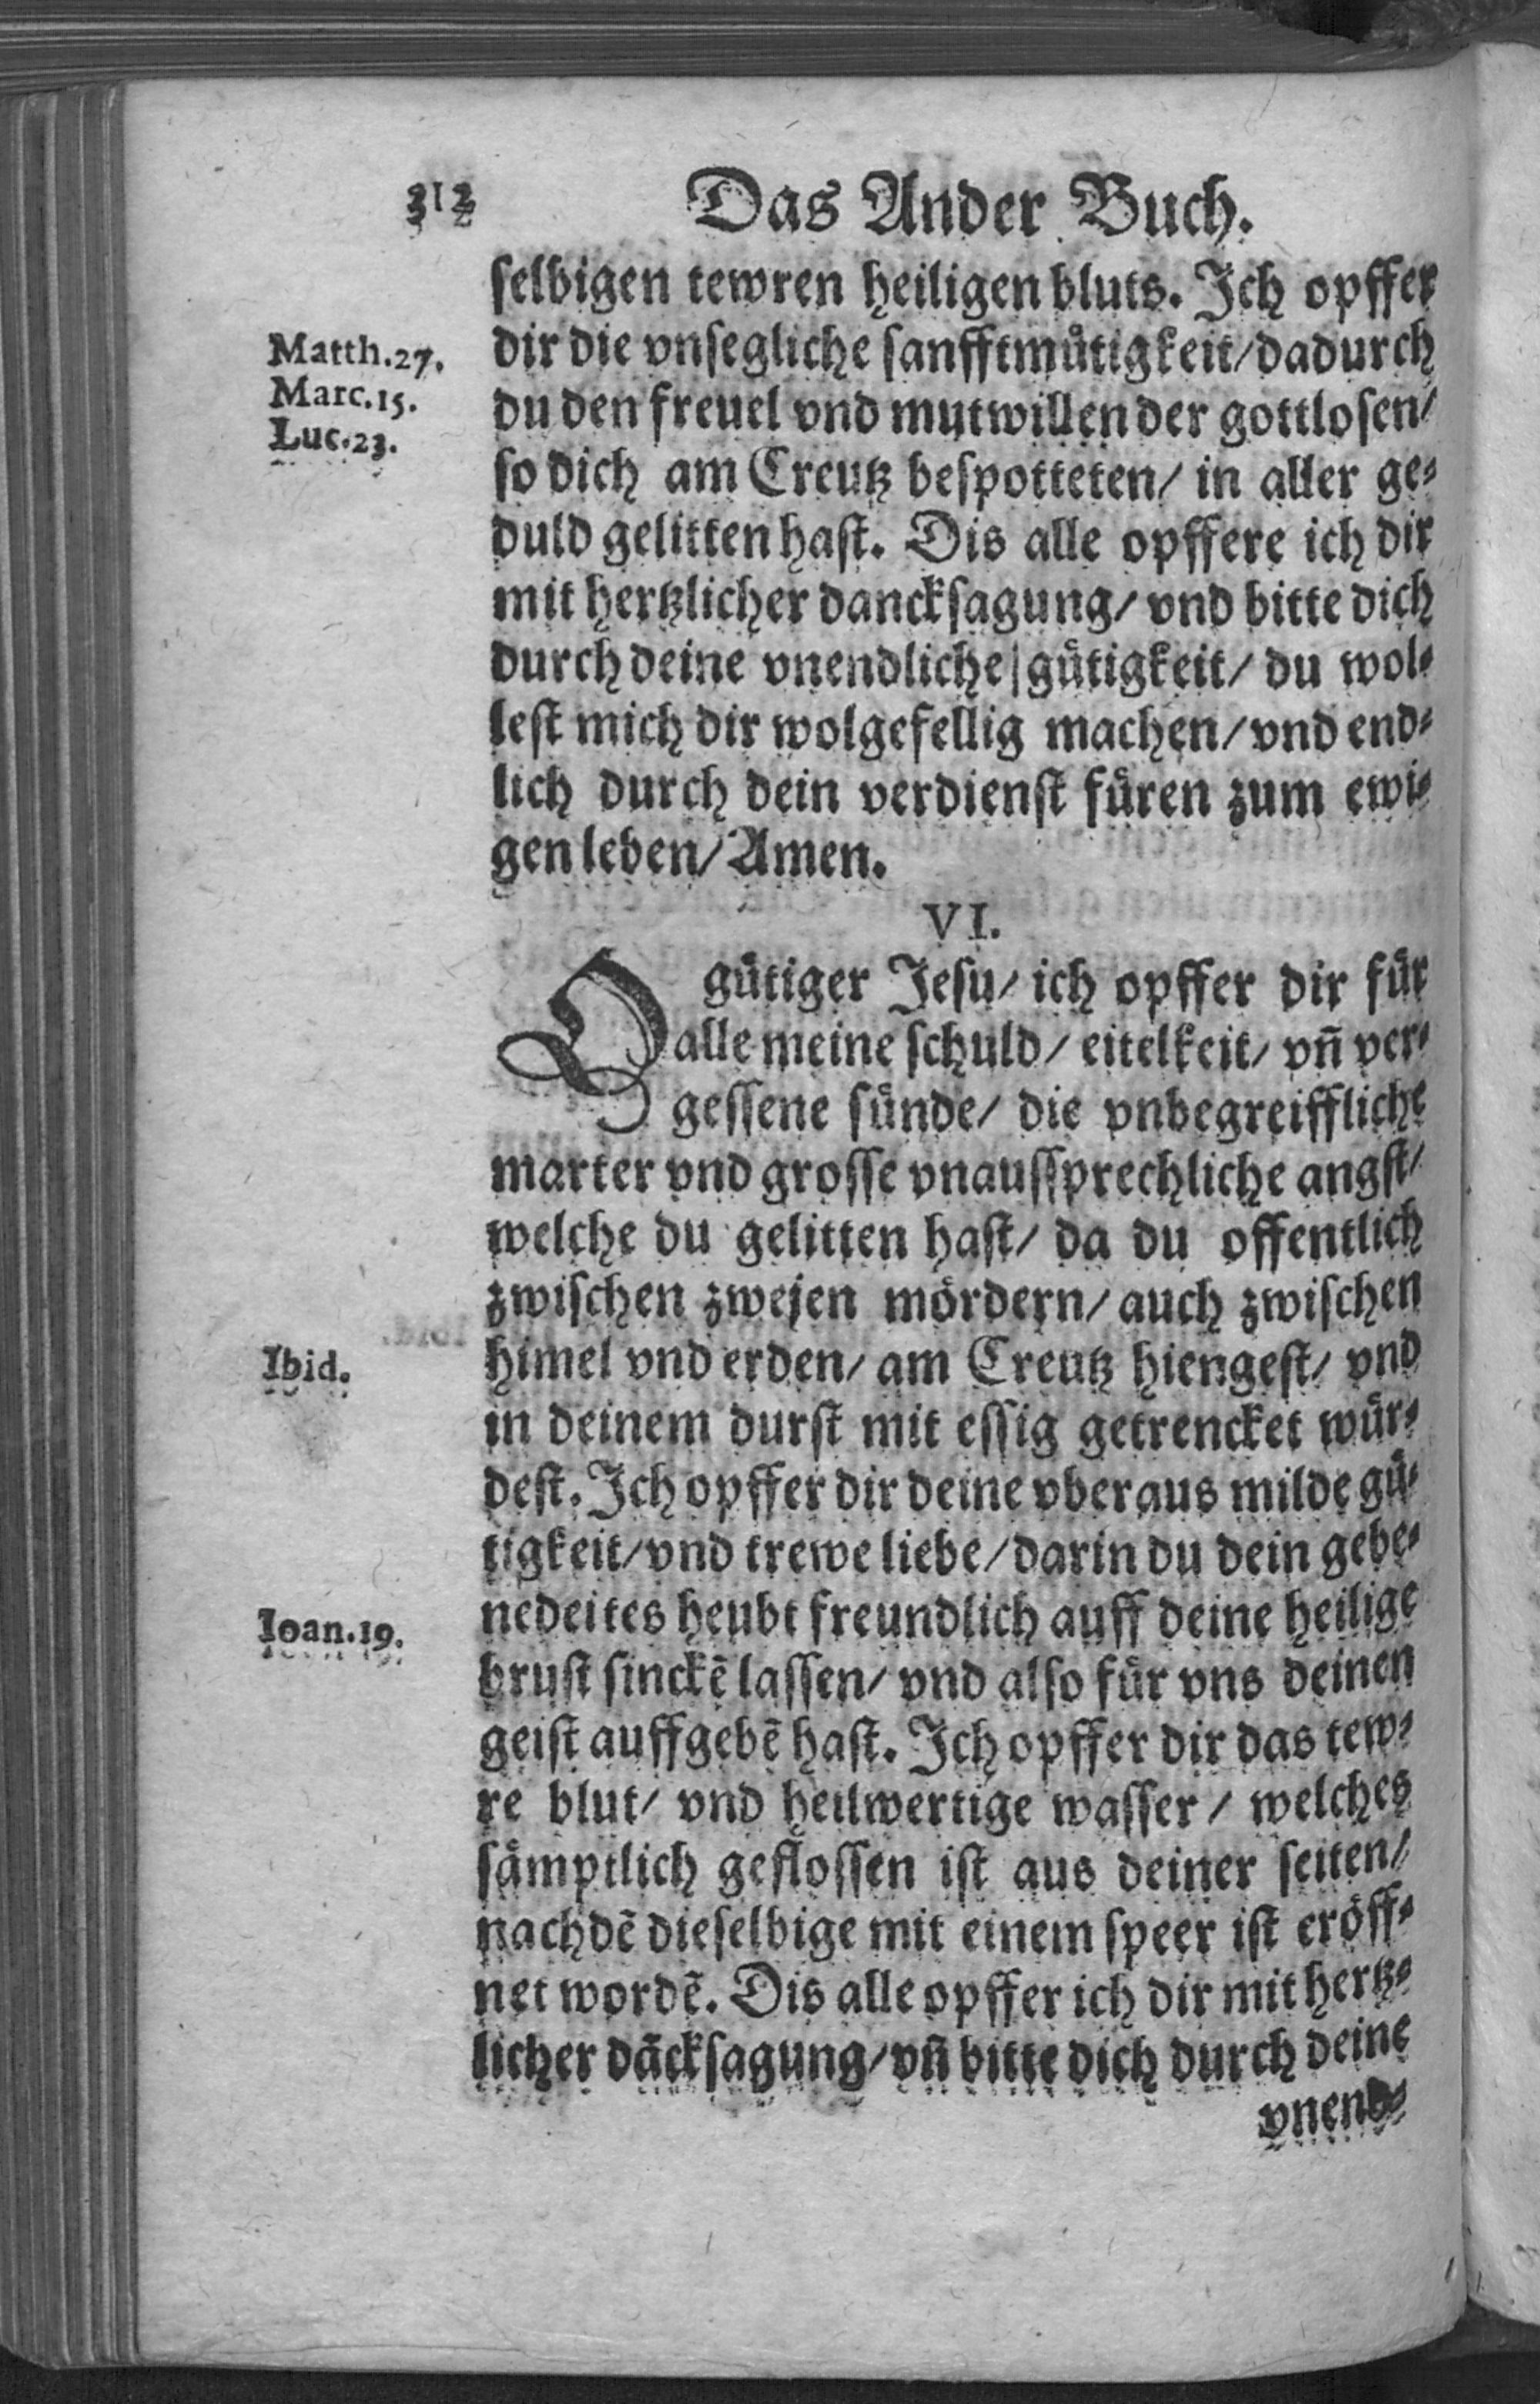 312 Das Ander Buch.
selbigen tewren heiligen bluts. Ich opffer
Matth.27.
dir die vnsegliche sanfftmuͤtigkeit/dadurch
Marc.15.
du den freuel vnd mutwillen der gottlosen/
Luc.23.
so dich am Creutz bespotteten/ in aller ge-
duld gelitten hast. Dis alle opffere ich dir
mit hertzlicher dancksagung/ vnd bitte dich
durch deine vnendliche guͤtigkeit/ du wol-
lest mich dir wolgefellig machen/ vnd end-
lich durch dein verdienst fuͤren zum ewi-
gen leben/ Amen.
VI.
O guͤtiger Jesu/ ich opffer dir fuͤr
alle meine schuld/ eitelkeit/ vñ ver-
gessene suͤnde/ die vnbegreiffliche
marter vnd grosse vnaussprechliche angst/
welche du gelitten hast/ da du offentlich
zwischen zwejen moͤrdern/ auch zwischen
Ibid.
himel vnd erden/ am Creutz hiengest/ vnd
in deinem durst mit essig getrencket wuͤr-
dest. Ich opffer dir deine vberaus milde guͤ-
tigkeit/vnd trewe liebe/darin du dein gebe-
Ioan.19.
nedeites heubt freundlich auff deine heilige
brust sinckẽ lassen/ vnd also fuͤr vns deinen
geist auffgebẽ hast. Ich opffer dir das tew-
re blut/ vnd heilwertige wasser/ welches
saͤmptlich geflossen ist aus deiner seiten/
nachdẽ dieselbige mit einem speer ist eroͤff-
net wordẽ. Dis alle opffer ich dir mit hertz-
licher dãcksagung/vñ bitte dich durch deine
vnend-